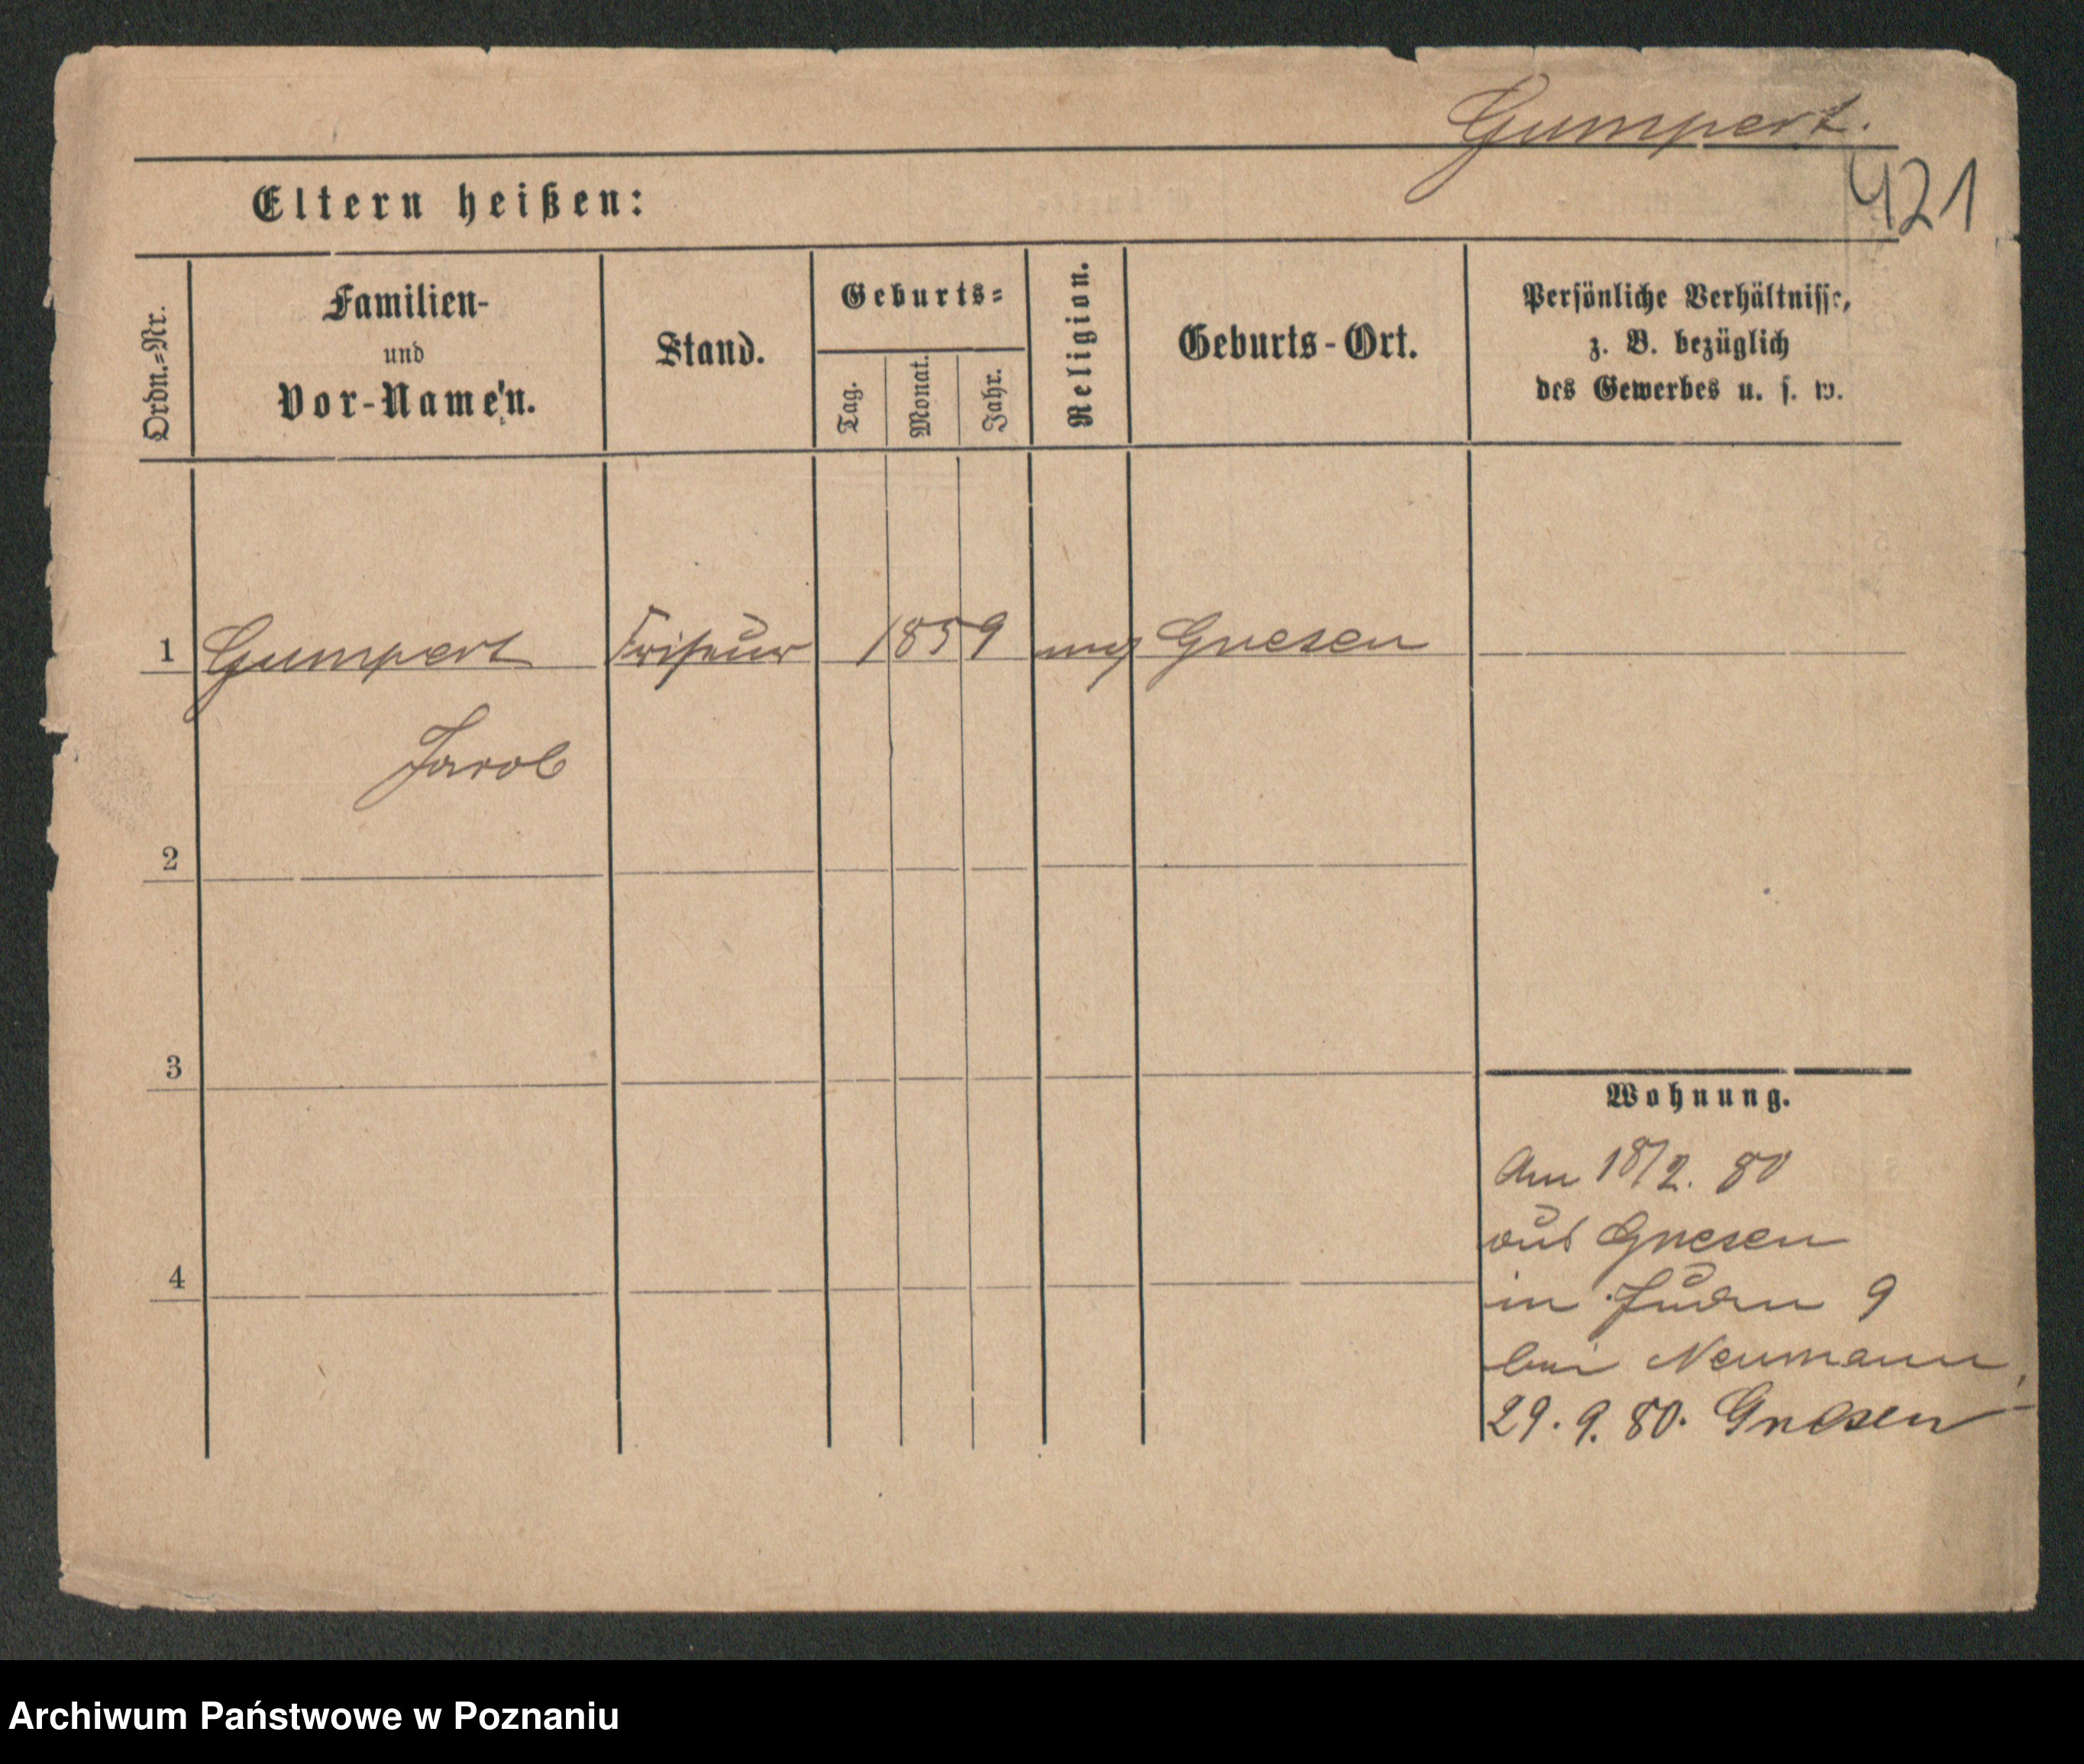 Gumpert.
421
Eltern heißen:
Ordn.=Nr.
Familien-
und
Vor-Namen.
Stand.
Geburts=
Tag.
Monat.
Jahr.
Religion.
Geburts-Ort.
Persönliche Verhältnisse,
z. B. bezüglich
des Gewerbes u. s. w.
1 Gumpert Friseur 1859 mos Gnesen
Jacob
2
3
4
Wohnung.
Am 18/2. 80
aus Gnesen
in Juden 9
bei Neumann,
29. 9. 80. Gnesen
Archiwum Państwowe w Poznaniu